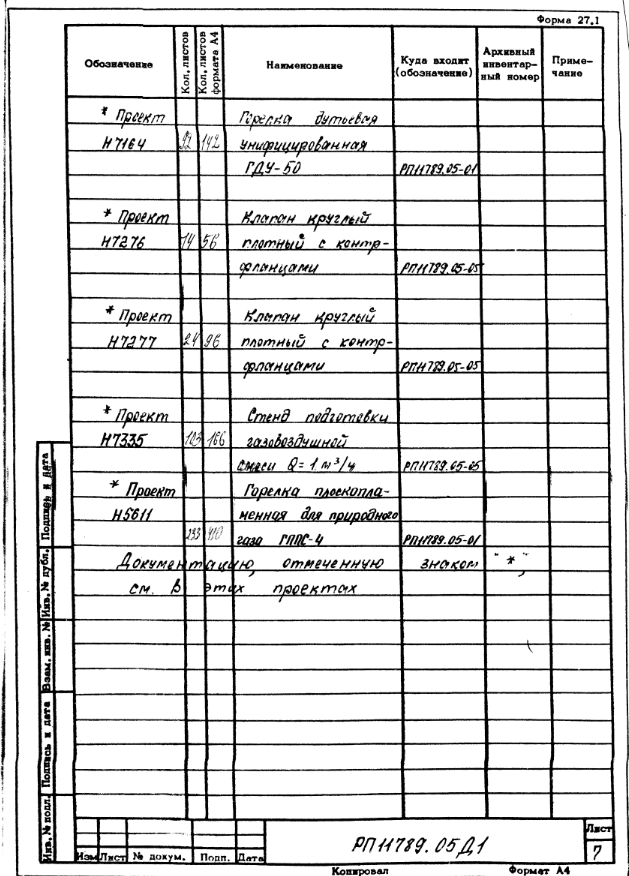 Форма 27.1
Обозначение Кол. листов Кол. листов формата А4 Наименование Куда входит (обозначение) Архивный инвентарный номер Примечание
* Проект Горелка дутьевая
Н7164 92 142 унифицированная
ГДУ-50 РП11789.05-01
* Проект Клапан круглый
Н7276 14 56 плотный с контр-
фланцами РП11789.05-05
* Проект Клапан круглый
Н7277 24 96 плотный с контр-
фланцами РП11789.05-05
* Проект Стенд подготовки
Н7335 103 166 газовоздушной
смеси Q = 1 м³/ч РП11789.05-05
* Проект Горелка плоскопла-
Н5611 менная для природного
233 410 газа ГППС-4 РП11789.05-01
Документацию, отмеченную знаком "*",
см. в этих проектах
Инв. № подл. Подпись и дата Взам. инв. № Инв. № дубл. Подпись и дата
Изм Лист № докум. Подп. Дата
РП11789.05Д1
Лист
7
Копировал Формат А4